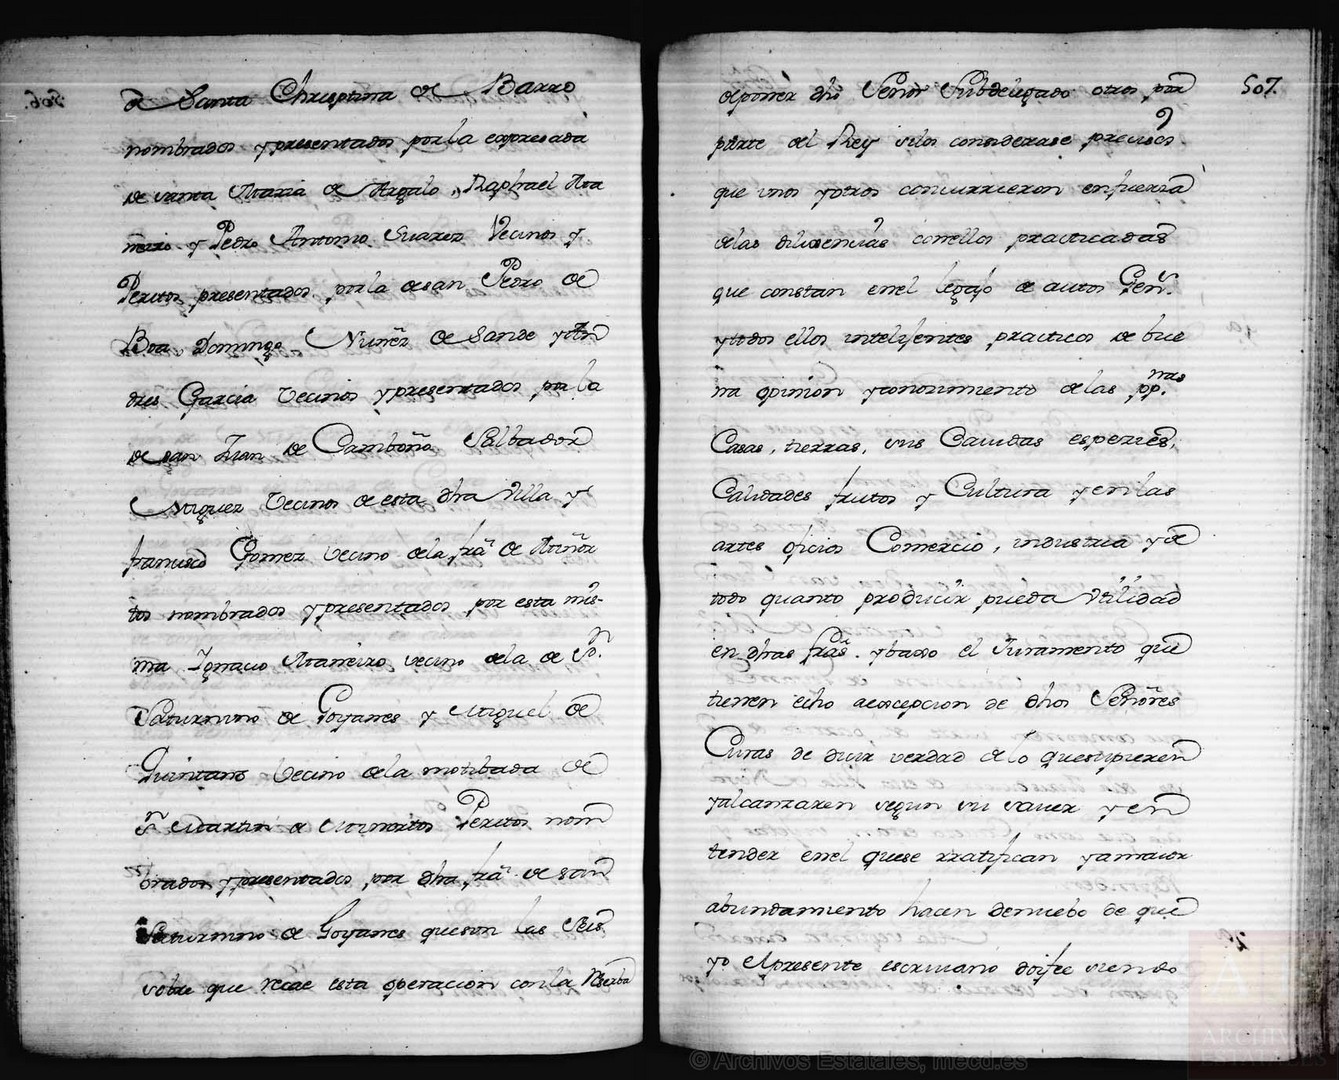 de Santa Chrisptina de Barro
nombrados ypresentados porla expresada
de santa Maria de Argalo, Raphael Ma
neiro y Pedro Antonio Suarez Vecinos y
Peritos presentados porla desan Pedro de
Boa Domingo Nuñez de Sande y An
dres Garcia Vecinos ypresentados por la
de san Juan de Camboño Salbador
Miguez Vecinos de esta dha Villa y
franisco Gomez Vecino dela fra de Miñor
tos nombrados ypresentados por esta mis-
ma Ignacio Maneiro vecino dela de Sn.
Saturnino de Goyanes y Miguel de
Quintans Vecino dela motibada de
Sn Martin de Miñortos Peritos nom
brados ypresentados por dha fra de san
Saturnino de Goyanes queson las Seis
sobre que recae esta operacion conla Reserba
507.
deponer dho Señor Subdelegado otros por
parte del Rey silos considerase precisos
que unos yotros concurrieron enfuerza
delas dilixencias conellos practicadas
que constan enel legajo de autos Genr.
ytodos ellos intelijentes practicos de bue
na opinion yconocimiento delas pp.nas
Casas, tierras, sus Cavidas especies,
Calidades frutos y Cultura yenlas
artes oficios Comercio, industria yde
todo quanto producir pueda Utilidad
en dhas fras. ybaxo el Juramento que
tienen echo aecepcion de dhos Señores
Curas de dicir verdad delo quesupieren
yalcanzaren segun su saver y en
tender enel quese rratifican yamaior
abundamiento hacen denuebo de que
yo elpresente escrivano doifee siendo
© Archivos Estatales, mecd.es
ARCHIVOS
ESTATALES